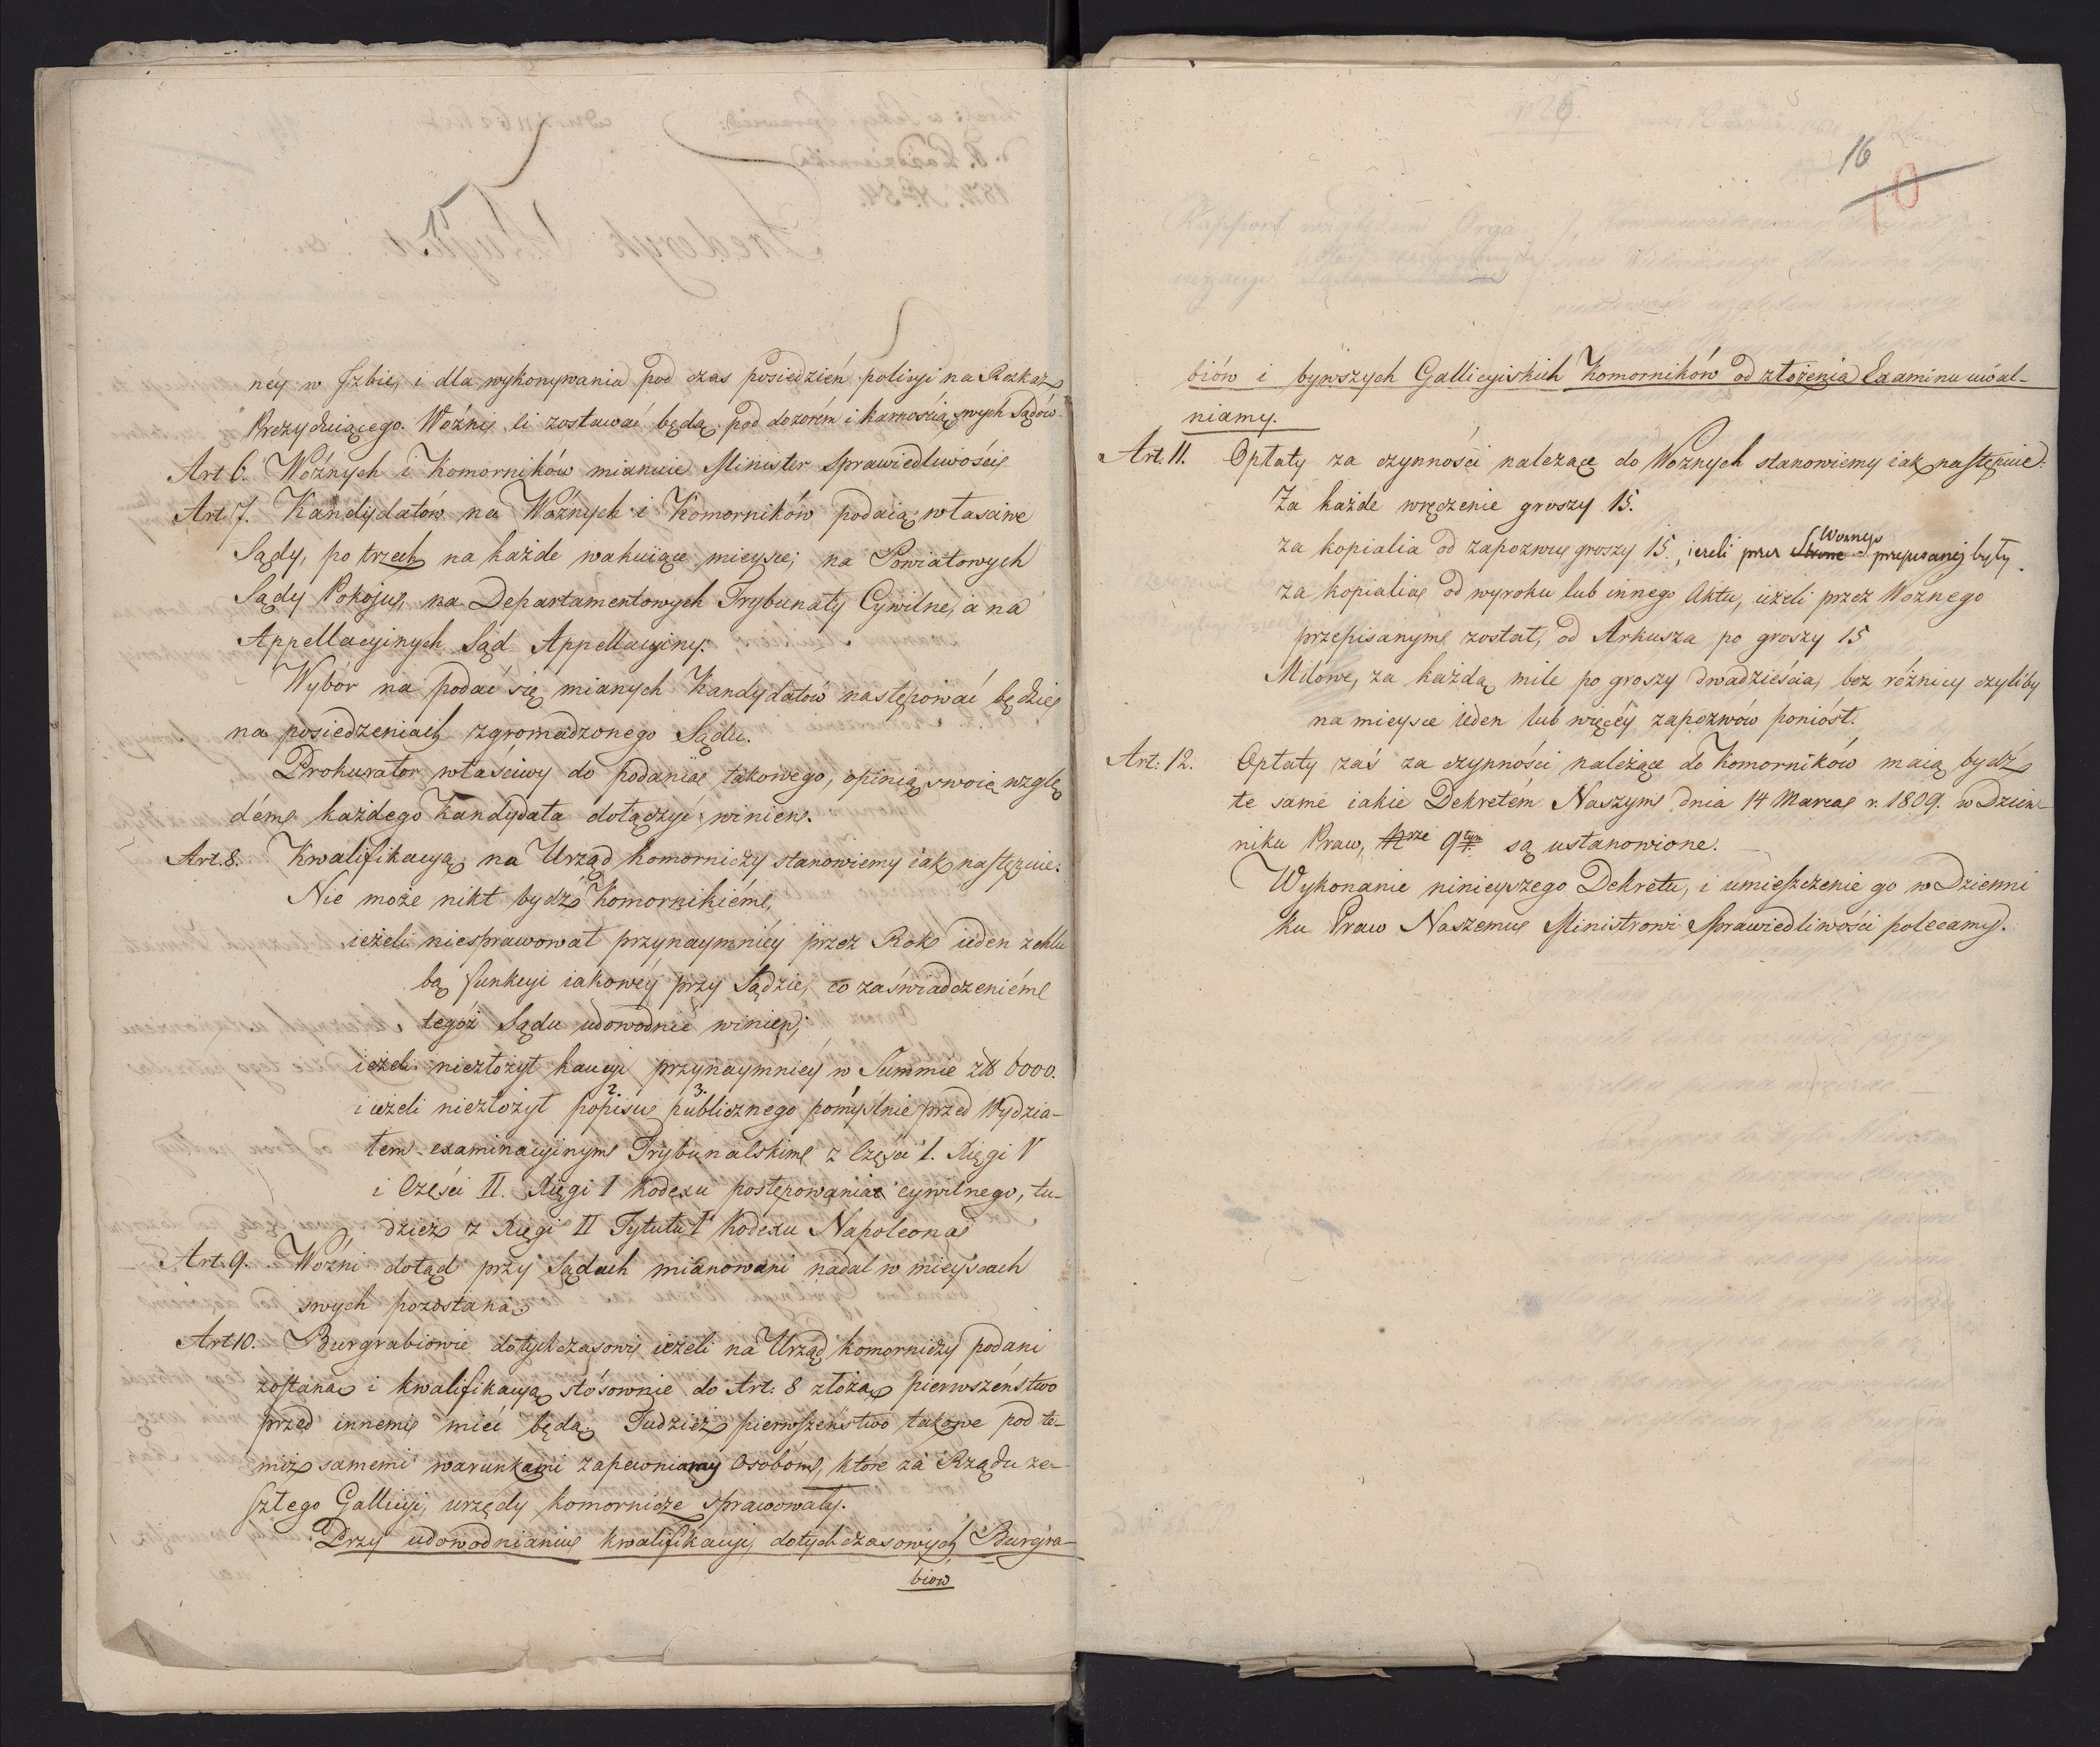 ney w Jzbie, i dla wykonywania pod czas posiedzień policyi na Rozkaz
Prezyduiącego. Woźni ci zostawać będą pod dozorem i karnością swych Sądów.
Art 6. Woźnych i Komorników mianuie Minister Sprawiedliwości
Art 7. Kandydatów na Woźnych i Komorników podaią właściwe
Sądy, po trzech na każde wakuiące mieysce; na Powiatowych
Sądy Pokoju, na Departamentowych Trybunały Cywilne, a na
Appellacyinych Sąd Appellacyiny.
Wybór na podać się mianych Kandydatów następować będzie
na posiedzeniach zgromadzonego Sądu.
Prokurator właściwy do podania takowego, opinią swoię wzglę
dem każdego Kandydata dołączyć winien.
Art. 8. Kwalifikacyą na Urząd Komorniczy stanowiemy iak następuie:
Nie może nikt bydź Komornikiem,
ieżeli niesprawował przynaymniéy przez Rok ieden z chlu
bą funkcyi iakowéy przy Sądzie, co zaświadczeniem
tegoż Sądu udowodnić winien;
ieżeli niezłożył kaucyi przynaymniéy w Summie zł 6000.
i ieżeli niezłożył popisu 2. publicznego 3. pomyślnie przed Wydzia-
łem examinacyinym Trybunalskim z Części I. Xięgi V
i Części II. Xięgi I Kodexu postępowania cywilnego, tu-
dzież z Xięgi II Tytułu I Kodexu Napoleona
Art. 9. Woźni dotąd przy Sądach mianowani nadal w mieyscach
swych pozostaną
Art 10. Burgrabiowie dotychczasowi ieżeli na Urząd Komorniczy podani
zostaną i kwalifikacyą stósownie do Art: 8 złożą pierwszeństwo
przed innemi mieć będą Tudzież pierwszeństwo takowe pod te-
miż samemi warunkami zapewniamy Osobóm, które za Rządu ze-
szłego Gallicyi, urzędy komornicze sprawowały.
Przy udowodnianiu kwalifikacyi, dotychczasowych Burgra-
biow
16
10
biów i bywszych Gallicyiskich Komorników od złożenia Examinu uwal-
niamy.
Art. 11. Opłaty za czynności należące do Woźnych stanowiemy iak następuie:
Za każde wręczenie groszy 15.
za kopialia od zapozwu groszy 15., ieżeli przez Stronę Woznego przepisanej były.
za kopialia od wyroku lub innego Aktu, ieżeli przez Woznego
przepisanym został, od Arkusza po groszy 15
Milowe, za każdą mile po groszy dwadzieścia, bez różnicy czyliby
na mieysce ieden lub więcéy zapozwów poniósł.
Art: 12. Opłaty zaś za czynności należące do Komorników maią bydź
te same iakie Dekretém Naszym dnia 14 Marca r. 1809. w Dzien-
niku Praw, Nrze 9tym są ustanowione.
Wykonanie ninieyszego Dekretu, i umieszczenie go w Dzienni
ku Praw Naszemu Ministrowi Sprawiedliwości polecamy.